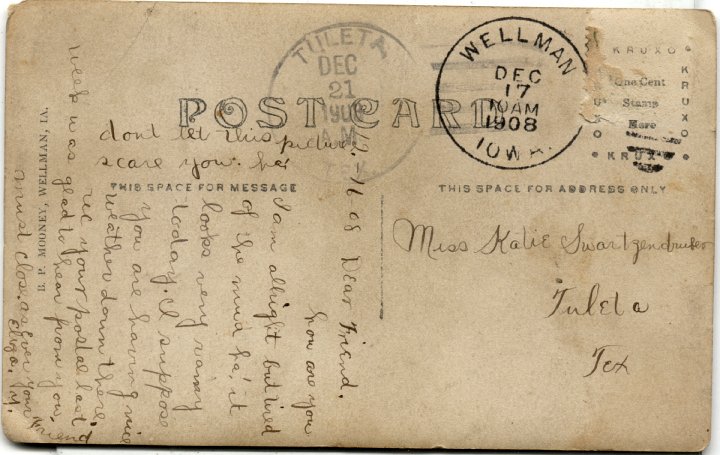 TULETA
DEC
21
1908
A.M.
TEX.
WELLMAN
DEC
17
10AM
1908
IOWA.
KRUXO
KRUXO
One Cent
Stamp
Here
KRUXO
POST CARD
THIS SPACE FOR MESSAGE
THIS SPACE FOR ADDRESS ONLY
B. P. MOONEY, WELLMAN, IA.
dont let this picture
scare you. ha
12-16 08 Dear Friend.
how are you
I am allright but tired
of the mud ha, it
looks very rainy
today. I suppose
you are having nice
weather down there.
rec your postal last
week was glad to hear from you,
must close. as Ever your Friend
Eliza. Y.
Miss Katie Swartzendruber
Tuleta
Tex